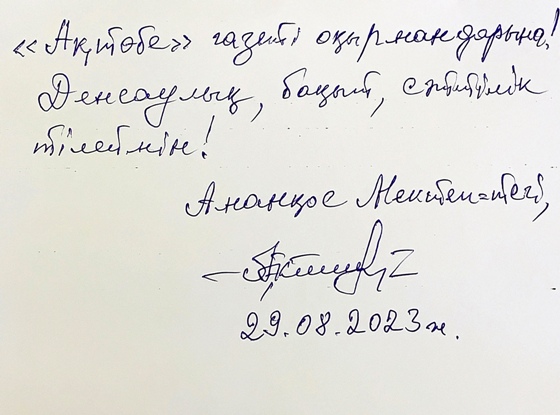 «Ақтөбе» газеті оқырмандарына!
Денсаулық, бақыт, сәттілік
тілеймін!
Мектеп-тегі,
29.08.2023ж.